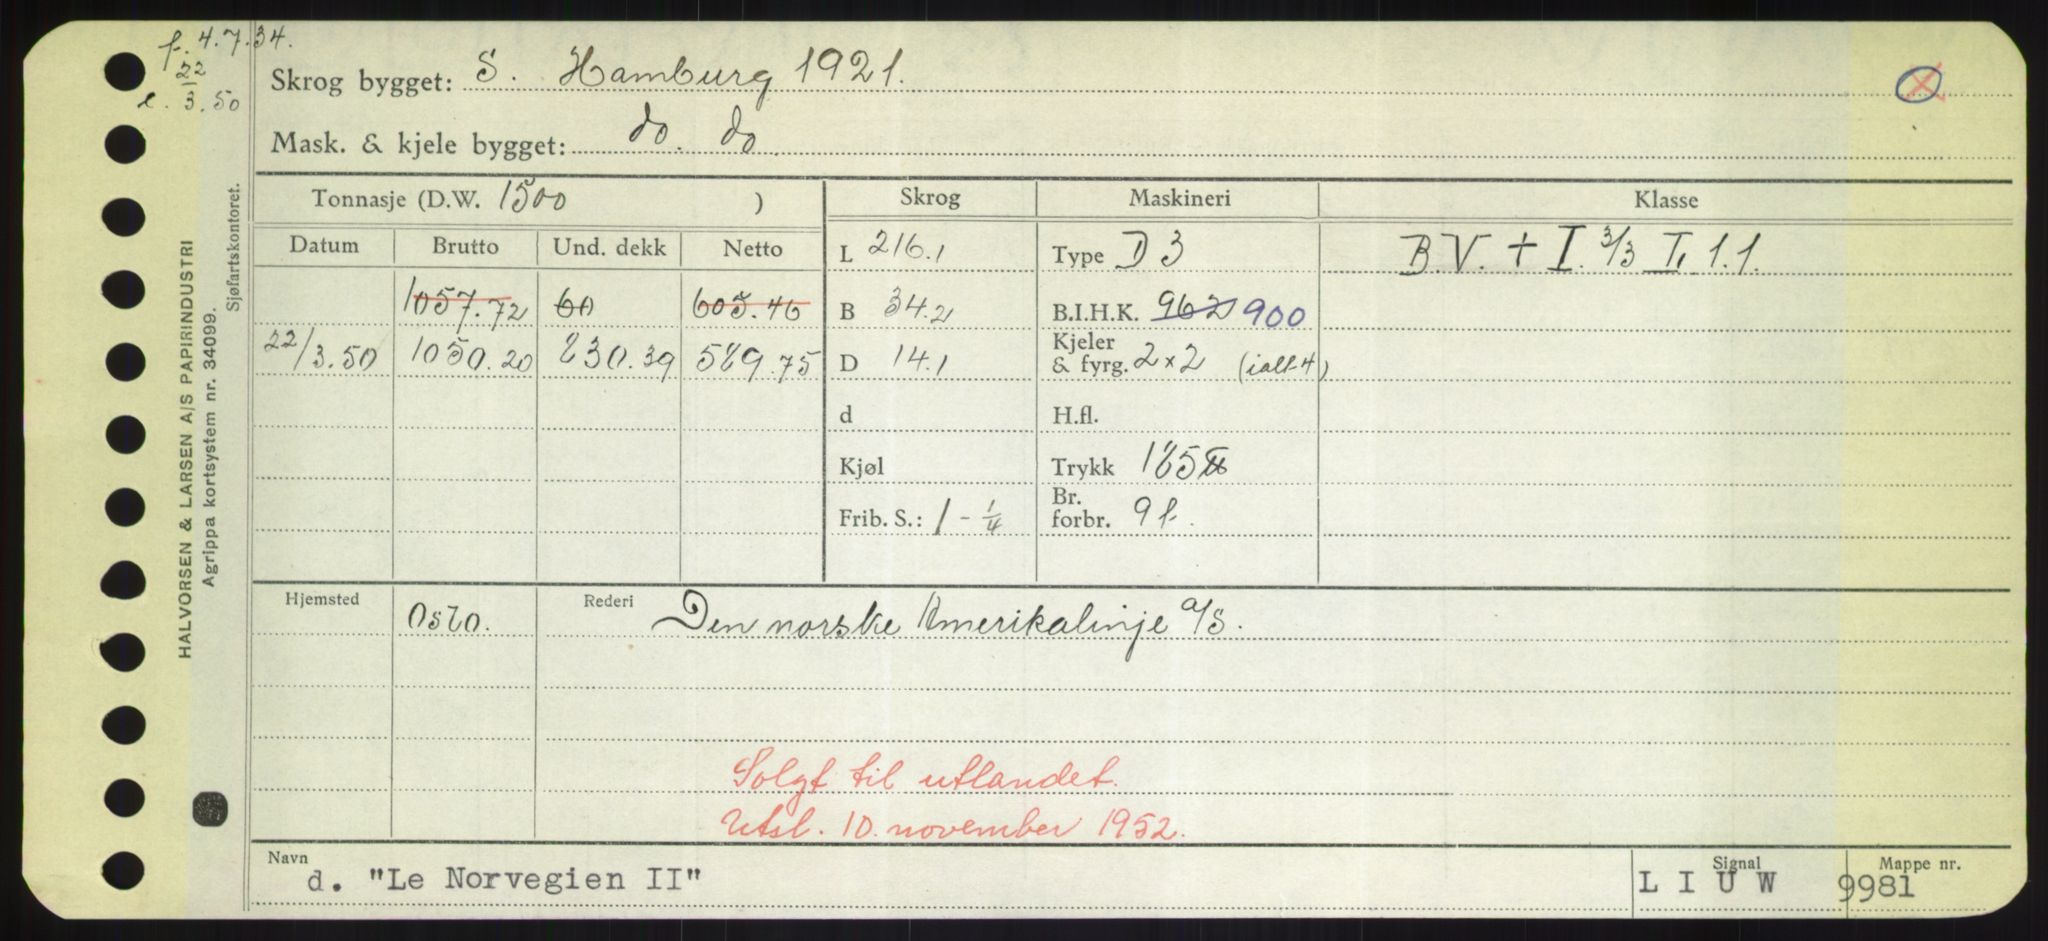 f. 4.7.34.
22
e. 3.50
Skrog bygget: S. Hamburg 1921.
Mask. & kjele bygget: do. do.
HALVORSEN & LARSEN A/S PAPIRINDUSTRI
Agrippa kortsystem nr. 34099.
Sjøfartskontoret.
Tonnasje (D.W. 1500 ) Skrog Maskineri Klasse
Datum Brutto Und. dekk Netto L 216.1 Type D 3 B.V. + I. 3/3 I. 1.1.
1057.72 60 605.46 B 34.2 B.I.H.K. 962 900
22/3.50 1050.20 830.39 589.75 D 14.1 Kjeler & fyrg. 2 x 2 (ialt 4)
d H.fl.
Kjøl Trykk 185 ℔
Frib. S.: 1 - 1/4 Br. forbr. 9 t.
Hjemsted Oslo. Rederi Den norske Amerikalinje a/s.
Solgt til utlandet.
Utsl. 10. november 1952.
Navn Signal Mappe nr.
d. "Le Norvegien II" L I U W 9981